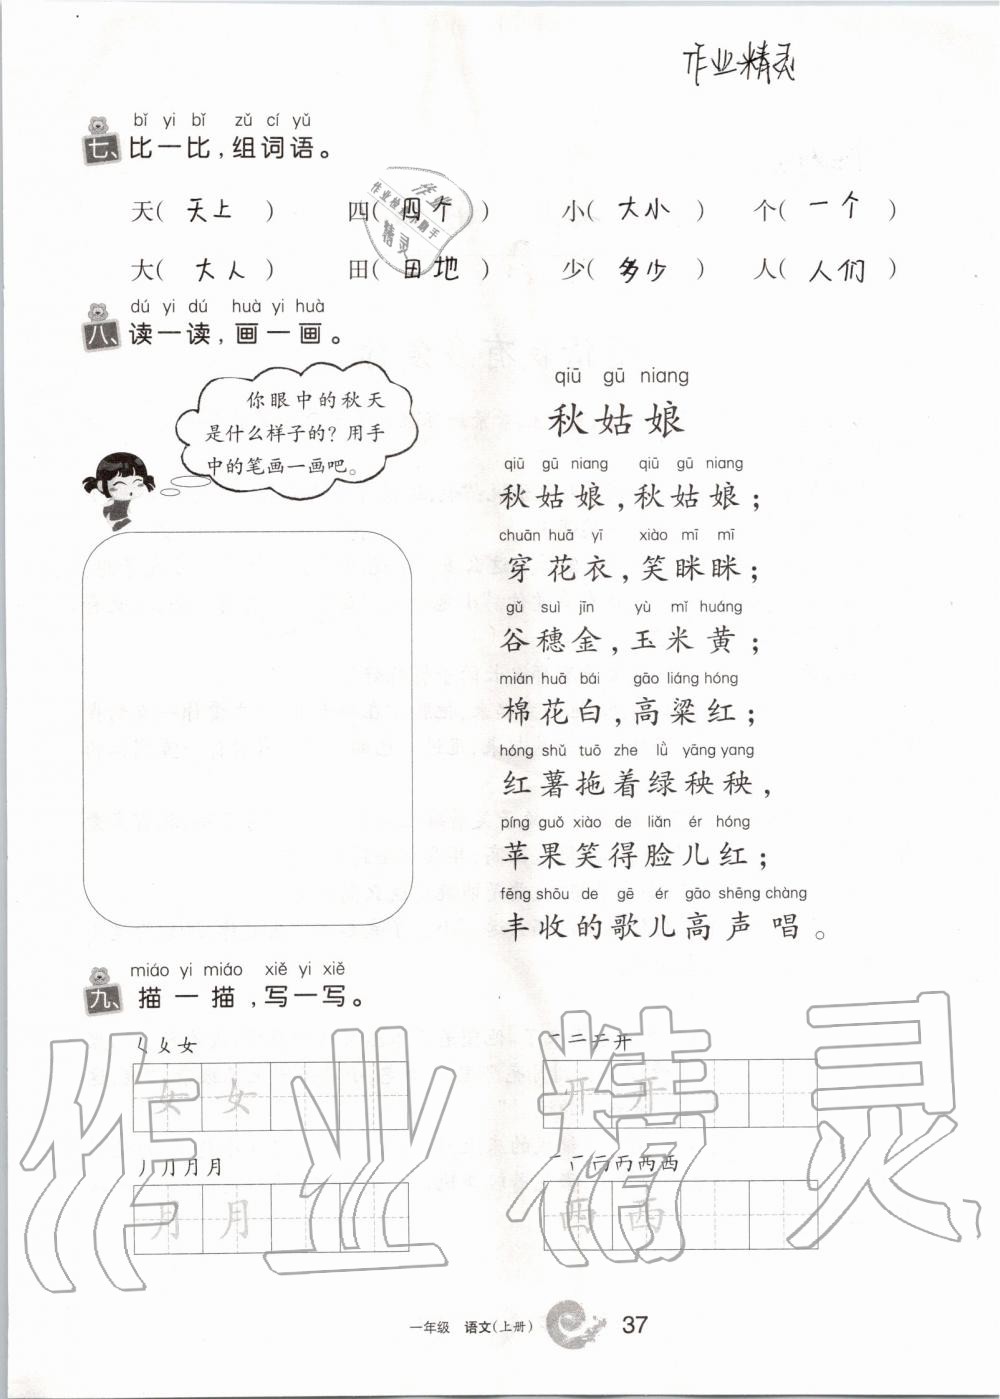 作业精灵
bǐ yi bǐ zǔ cí yǔ
七、比一比,组词语。
天( 天上 ) 四( 四个 ) 小( 大小 ) 个( 一个 )
大( 大人 ) 田( 田地 ) 少( 多少 ) 人( 人们 )
作业
作业检查小助手
精灵
dú yi dú huà yi huà
八、读一读,画一画。
你眼中的秋天
是什么样子的?用手
中的笔画一画吧。
qiū gū niang
秋姑娘
qiū gū niang qiū gū niang
秋姑娘,秋姑娘;
chuān huā yī xiào mī mī
穿花衣,笑眯眯;
gǔ suì jīn yù mǐ huáng
谷穗金,玉米黄;
mián huā bái gāo liáng hóng
棉花白,高粱红;
hóng shǔ tuō zhe lǜ yāng yang
红薯拖着绿秧秧,
píng guǒ xiào de liǎn ér hóng
苹果笑得脸儿红;
fēng shōu de gē ér gāo shēng chàng
丰收的歌儿高声唱。
miáo yi miáo xiě yi xiě
九、描一描,写一写。
𡿨 女 女
一 二 于 开
女 女
开 开
丿 ⺆ 月 月
月 月
西 西
作业精灵
一年级 语文(上册) 37